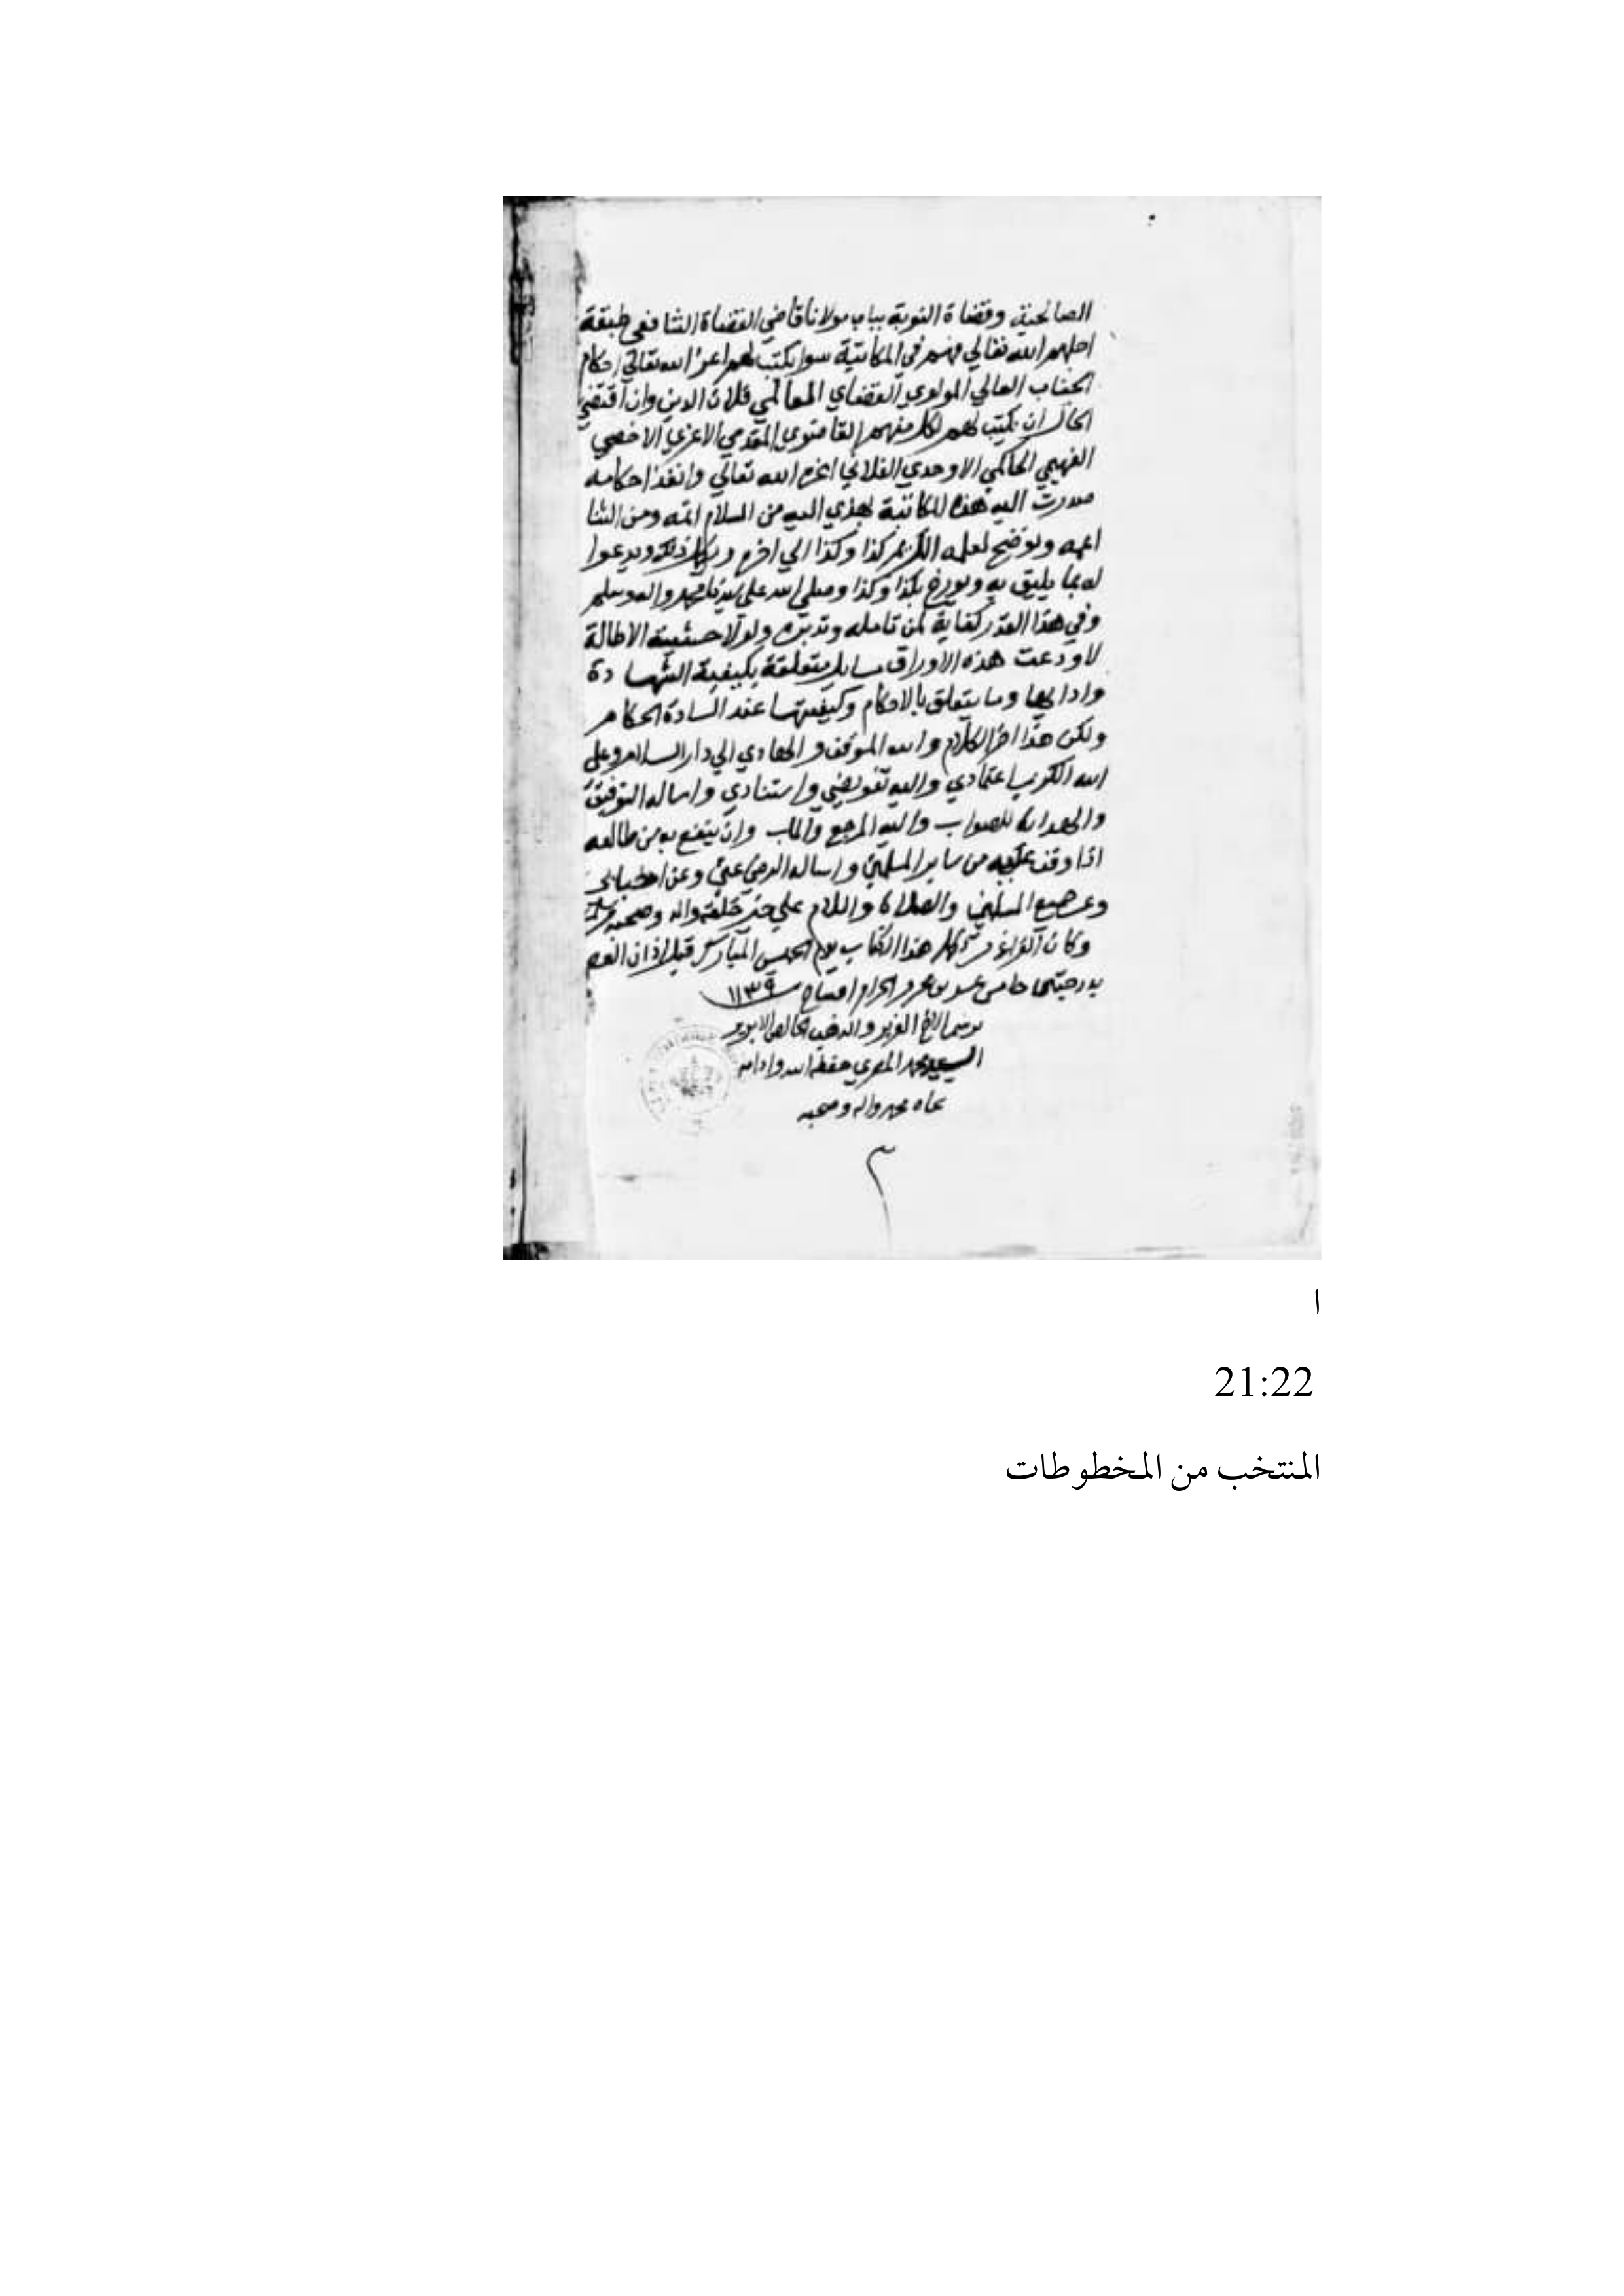 الصالحية وقضاة النوبة بباب مولانا قاضي القضاة الشافعي طبقة
اجلهم الله تعالي فهم في المكاتبة سوا يكتب لهم اعز الله تعالي احكام
الجناب العالي المولوي القضاي العالمي فلان الدين وان اقتضي
الحال ان يكتب لهم لكل منهم القاضوي الاعزي الاخصي
الفهيمي الحاكمي الاوحدي الفلاني اعزه الله تعالي وانفذ احكامه
صدرت اليه هذه المكاتبة تهدي اليه من السلام اتمه ومن الثنا
اعمه وتوضح لعلمه الكريم كذا وكذا الي اخره ذلك ويدعوا
له بما يليق به ويورخ بكذا وكذا وصلي الله علي سيدنا محمد واله وسلم
وفي هذا القدر كفاية لمن تامله وتدبره ولولا خشية الاطالة
لاودعت هذه الاوراق مسايل متعلقة بكيفية الشهادة
وادابها وما يتعلق بالاحكام وكيفيتها عند السادة الحكام
ولكن هذا اخر الكلام والله الموفق والهادي الي دار السلام وعلي
الله الكريم اعتمادي واليه تفويضي واستنادي واساله التوفيق
والهداية للصواب واليه المرجع والماب وان ينفع به من طالعه
اذا وقف عليه من ساير المسلمين واساله الرضي عني وعن
وعن جميع المسلمين والصلاة والسلام علي خير خلقه واله وصحبه
وكان الفراغ من هذا الكتاب يوم الخميس المبارك قبل اذان
خامس الحرام افتتاح سنة ١١٣٩
برسم الاخ العزيز والذهب الخالص الابريز
السيد محمد المصري حفظه الله وادامه
بجاه محمد واله وصحبه
م
ا
21:22
المنتخب من المخطوطات